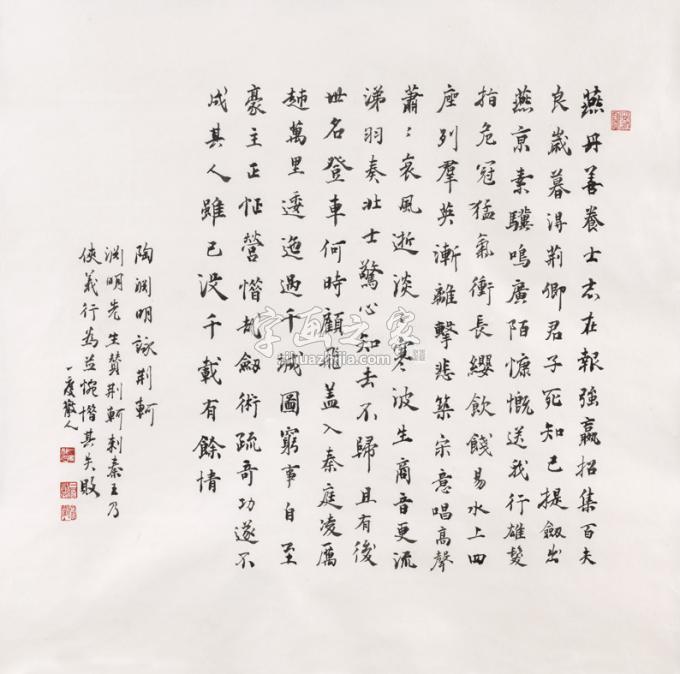 燕丹善養士志在報強嬴招集百夫
良歲暮得荊卿君子死知己提劍出
燕京素驥鳴廣陌慷慨送我行雄髮
指危冠猛氣衝長纓飲餞易水上四
座列羣英漸離擊悲築宋意唱高聲
蕭〻哀風逝淡〻寒波生商音更流
涕羽奏壯士驚心知去不歸且有後
世名登車何時顧飛蓋入秦庭凌厲
越萬里逶迤過千城圖窮事自至
豪主正怔營惜哉劍術疏奇功遂不
成其人雖已沒千載有餘情
陶淵明詠荊軻
淵明先生贊荊軻刺秦王乃
俠義行為益惋惜其失敗
一度散人
字画之家